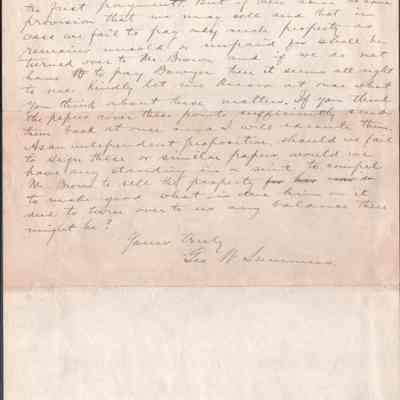 the first payment, but if
provision that we may sell and that in
case we fail to pay only such property as
remains unsold or unpaid for shall be
turned over to Mr Brown and if we do not
have to pay Bowyer then it seems all right
to me. Kindly let me know at once what
you think about these matters. If you think
the papers cover these points sufficiently send
them back at once and I will execute them.
As an independent proposition, should we fail
to sign these or similar papers would we
have any standing in a suit to compel
Mr Brown to sell the property
to make good what is due him on it
and to turn over to us any balance there
might be?
Yours truly
Geo W. Summers